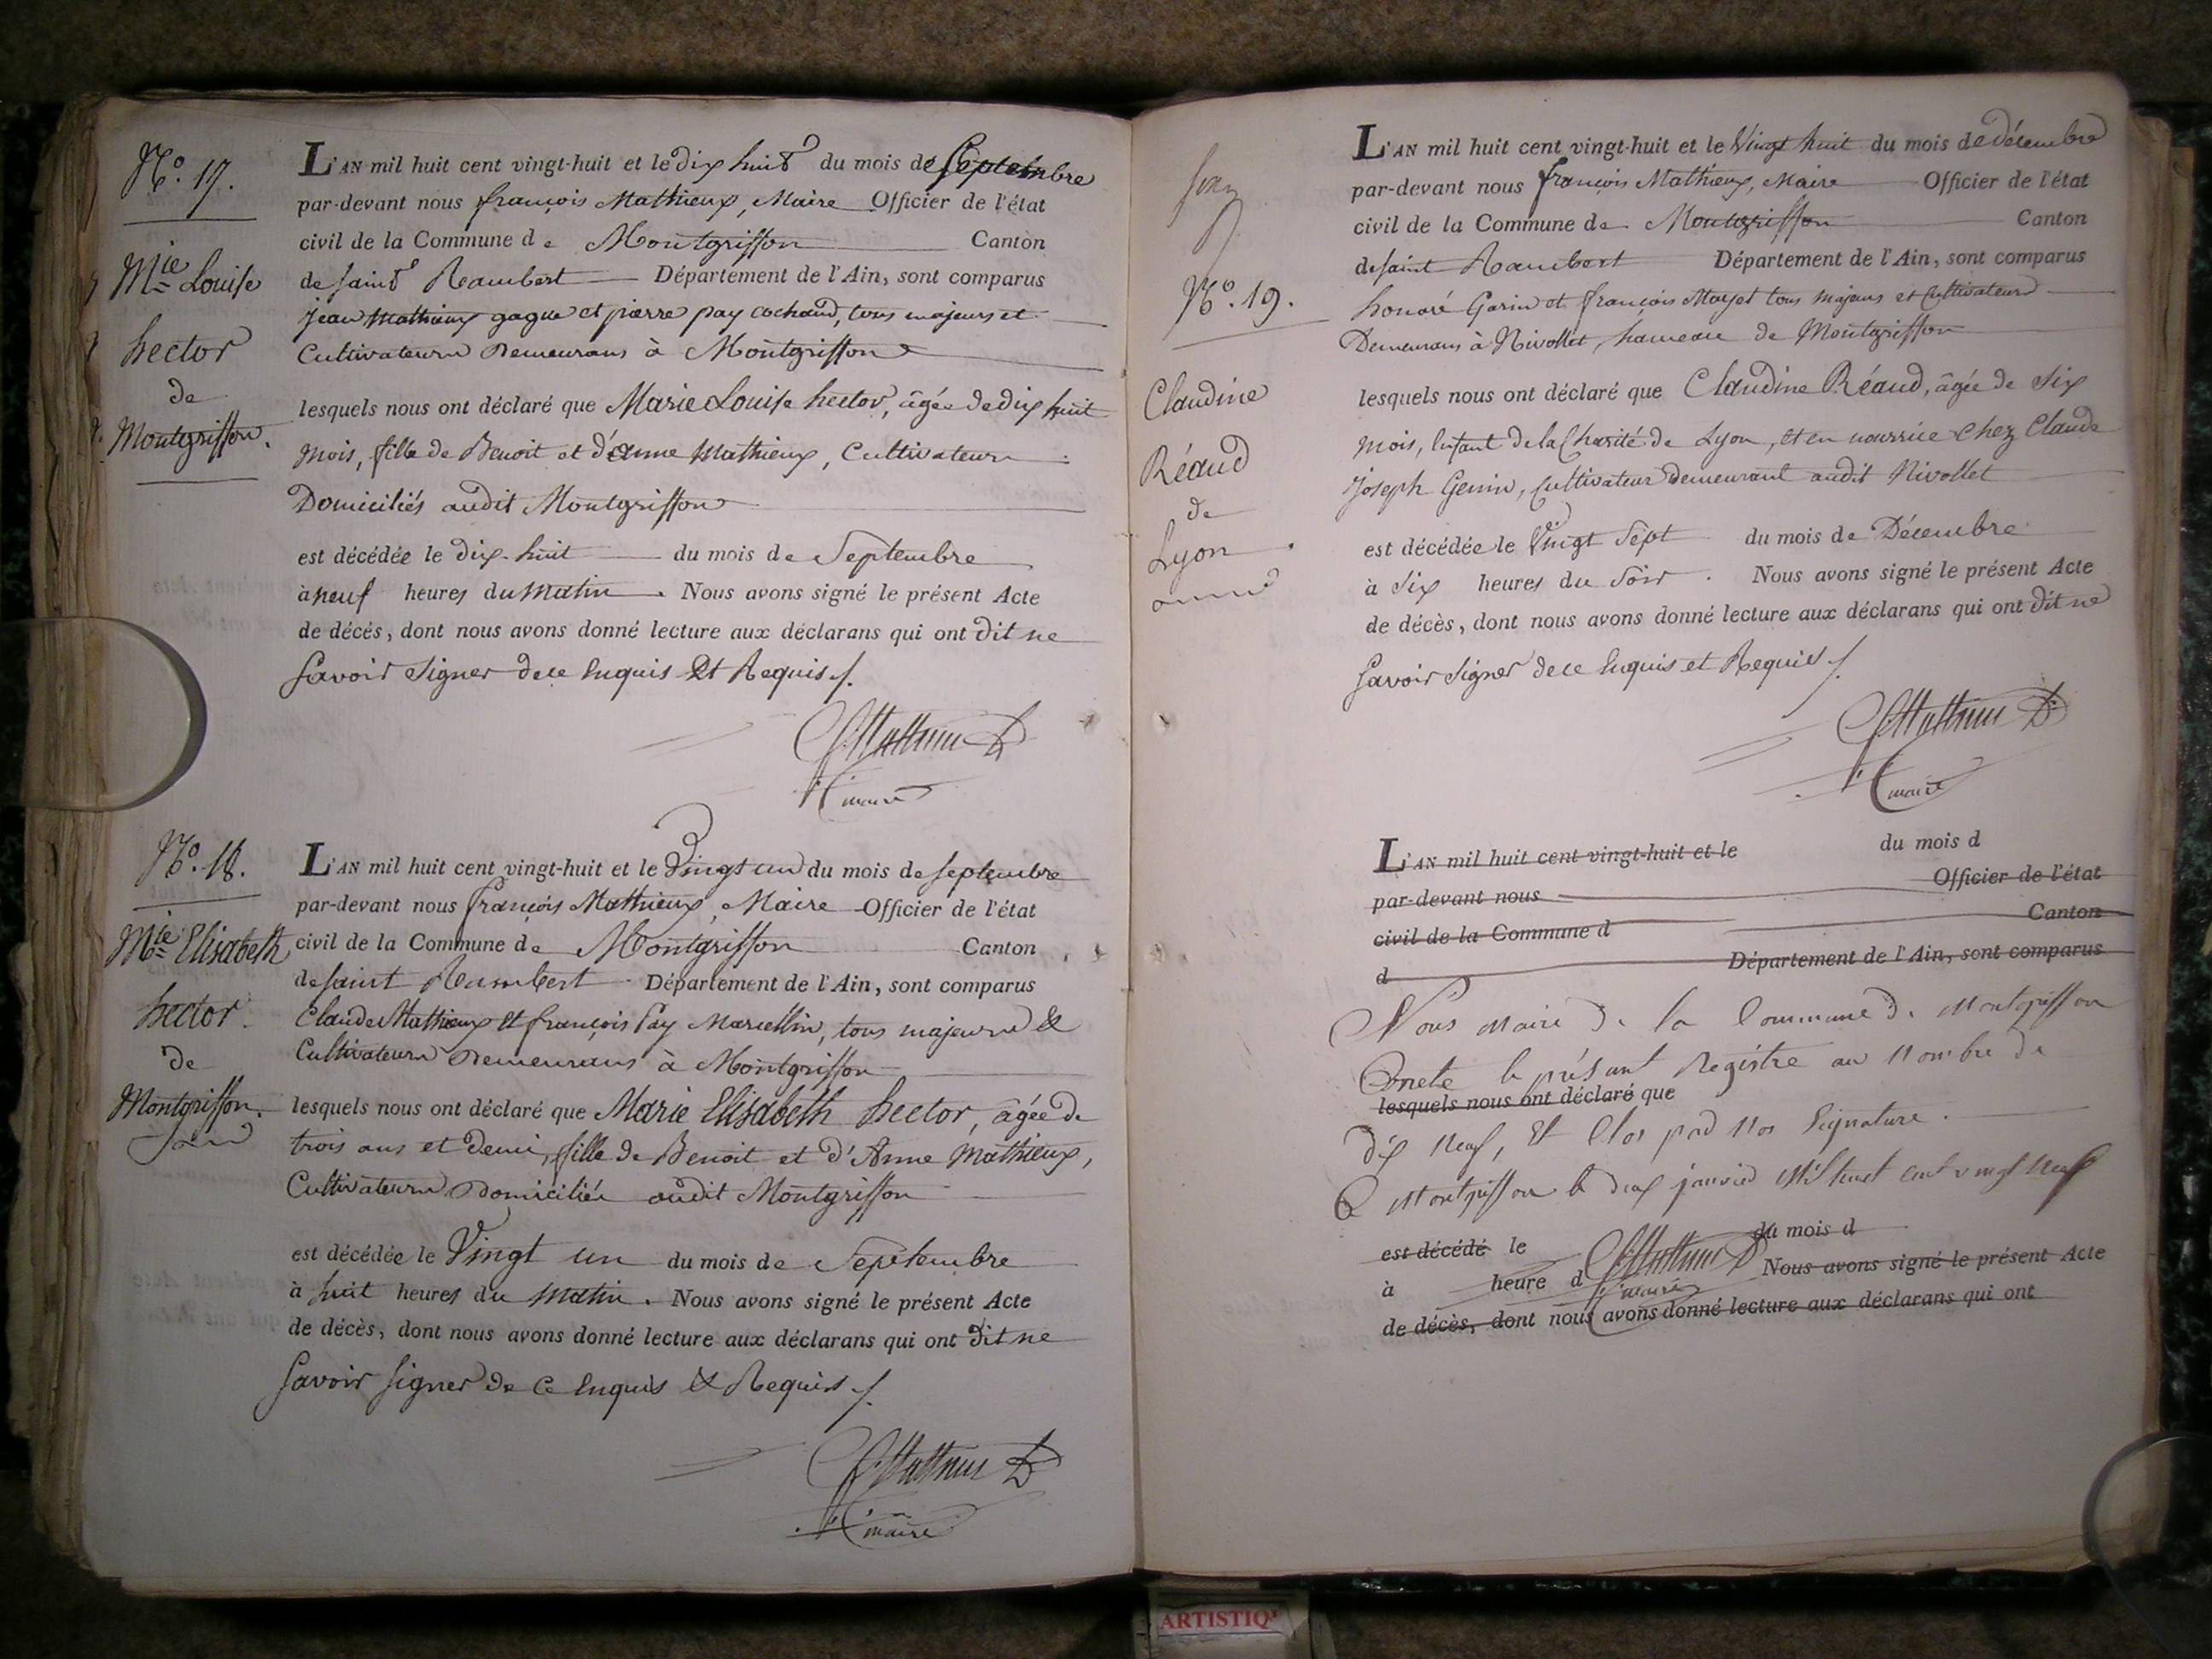 N.º 17.
M.ie Louise
hector
de
Montgriffon.
L'AN mil huit cent vingt-huit et le dix huit du mois de Septembre
par-devant nous françois Mathieux, Maire Officier de l'état
civil de la Commune de Montgriffon Canton
de saint Rambert Département de l'Ain, sont comparus
jean Mathieux gague et pierre pay cochand, tous majeurs et
Cultivateurs Demeurans à Montgriffon
lesquels nous ont déclaré que Marie Louise hector, âgée de dix huit
mois, fille de Benoit et d'anne Mathieux, Cultivateurs
Domiciliés audit Montgriffon
est décédée le dix-huit du mois de Septembre
à neuf heures du matin. Nous avons signé le présent Acte
de décès, dont nous avons donné lecture aux déclarans qui ont dit ne
savoir signer de ce Enquis Et Requis /.
f. Mathieux
maire
N.º 18.
M.ie Elisabeth
hector
de
Montgriffon.
L'AN mil huit cent vingt-huit et le Vingt un du mois de septembre
par-devant nous françois Mathieux, Maire Officier de l'état
civil de la Commune de Montgriffon Canton
de saint Rambert Département de l'Ain, sont comparus
Claude Mathieux et françois Pay Marcellin, tous majeurs &
Cultivateurs Demeurans à Montgriffon
lesquels nous ont déclaré que Marie Elisabeth hector, âgée de
trois ans et demi, fille de Benoit et d'Anne Mathieux,
Cultivateurs Domiciliés audit Montgriffon
est décédée le Vingt un du mois de Septembre
à huit heures du matin. Nous avons signé le présent Acte
de décès, dont nous avons donné lecture aux déclarans qui ont dit ne
savoir signer de ce Enquis & Requis /.
f. Mathieux
maire
N.º 19.
Claudine
Réaud
de
Lyon
L'AN mil huit cent vingt-huit et le Vingt huit du mois de décembre
par-devant nous françois Mathieux, Maire Officier de l'état
civil de la Commune de Montgriffon Canton
de saint Rambert Département de l'Ain, sont comparus
honoré Garin et françois Mayet tous majeurs et Cultivateurs
Demeurans à Nivollet, hameau de Montgriffon
lesquels nous ont déclaré que Claudine Réaud, âgée de six
mois, Enfant de la Charité de Lyon, et en nourrice chez Claude
joseph Genin, Cultivateur demeurant audit Nivollet
est décédée le Vingt Sept du mois de Décembre
à six heures du soir. Nous avons signé le présent Acte
de décès, dont nous avons donné lecture aux déclarans qui ont dit ne
savoir signer de ce Enquis et Requis /.
f. Mathieux
maire
L'AN mil huit cent vingt-huit et le du mois d
par-devant nous Officier de l'état
civil de la Commune d Canton
d Département de l'Ain, sont comparus
Nous Maire de la Commune de Montgriffon
arrete le présent Registre au Nombre de
lesquels nous ont déclaré que
dix Neuf, Et Clos par Nos Signature.
a Montgriffon le deux janvier Mil huit cent vingt Neuf
est décédé le du mois d
f. Mathieux
à heure d Nous avons signé le présent Acte
maire
de décès, dont nous avons donné lecture aux déclarans qui ont
ARTISTIQ